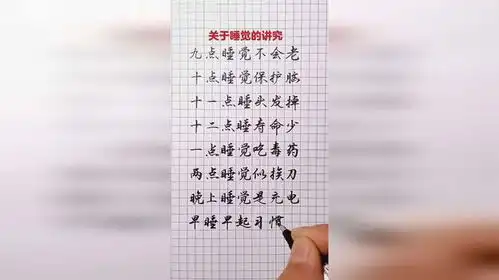 关于睡觉的讲究
九点睡觉不会老
十点睡觉保护脑
十一点睡头发掉
十二点睡寿命少
一点睡觉吃毒药
两点睡觉似挨刀
晚上睡觉是充电
早睡早起习惯